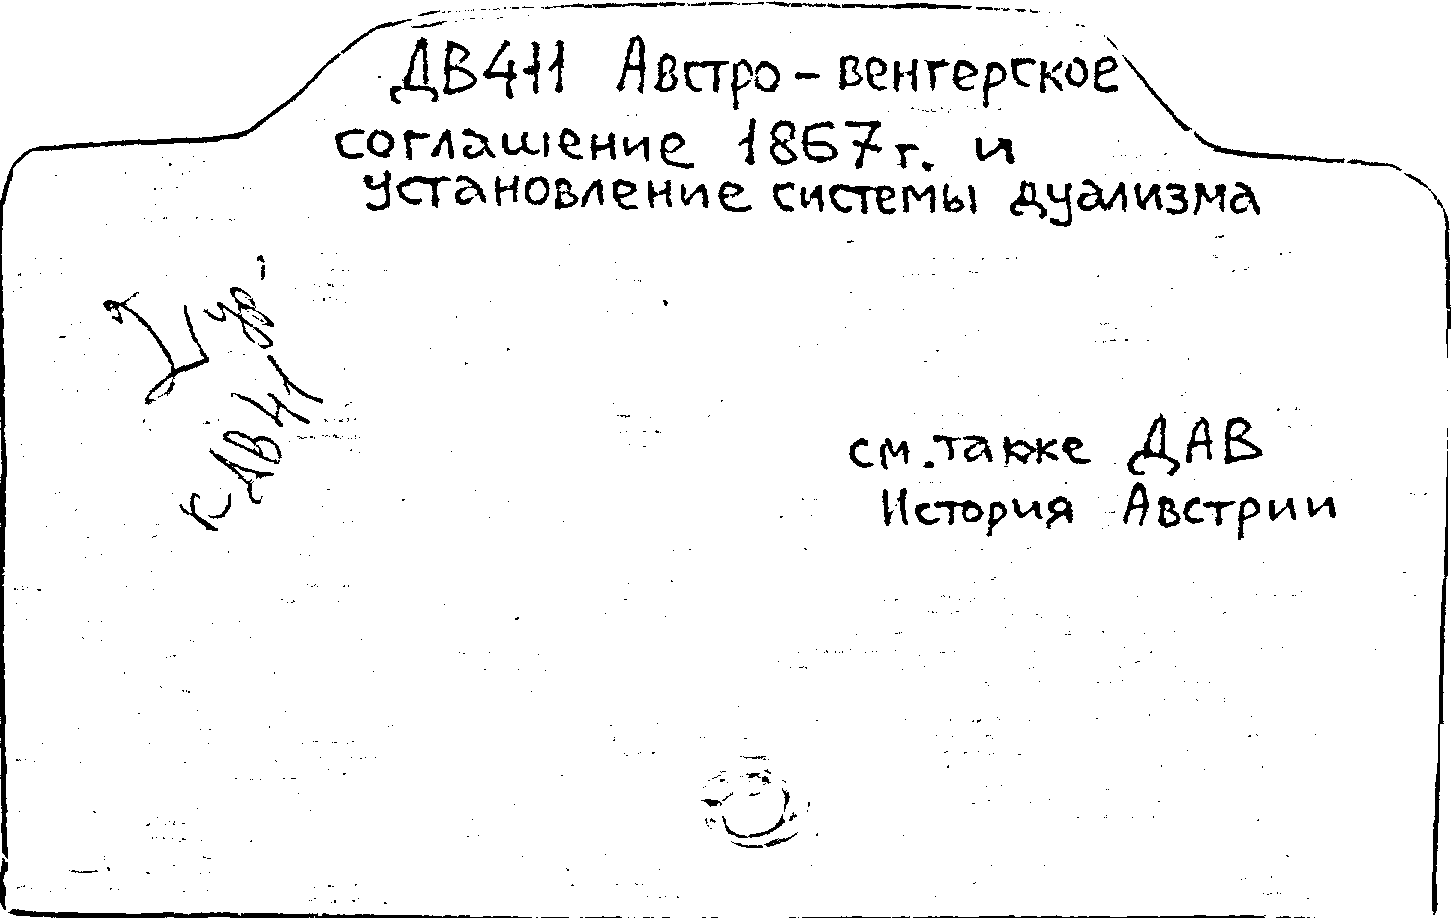 ДВ411 Австро-венгерское
соглашение 1867 г. и
установление системы дуализма
к ДВ41
см. также ДАВ
История Австрии